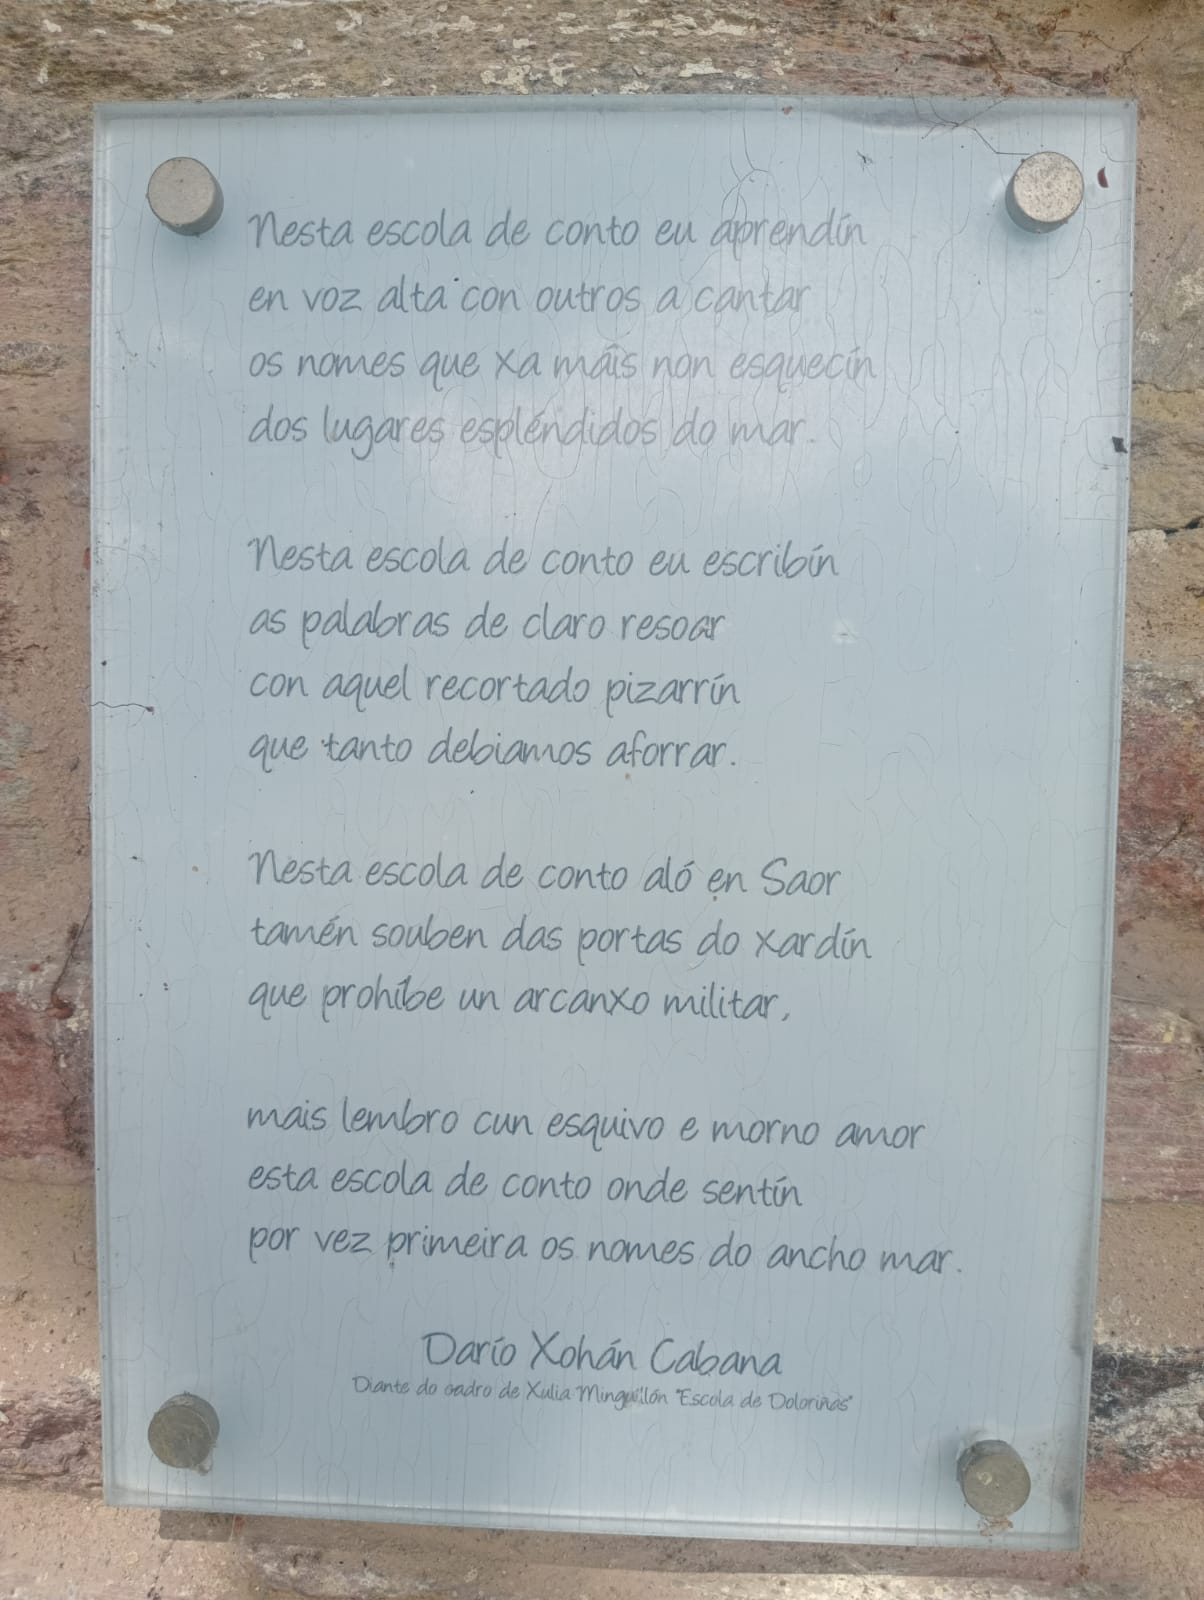 Nesta escola de conto eu aprendín
en voz alta con outros a cantar
os nomes que xa máis non esquecín
dos lugares espléndidos do mar.
Nesta escola de conto eu escribín
as palabras de claro resoar
con aquel recortado pizarrín
que tanto debiamos aforrar.
Nesta escola de conto aló en Saor
tamén souben das portas do xardín
que prohíbe un arcanxo militar,
mais lembro cun esquivo e morno amor
esta escola de conto onde sentín
por vez primeira os nomes do ancho mar.
Darío Xohán Cabana
Diante do cadro de Xulia Minguillón "Escola de Doloriñas"